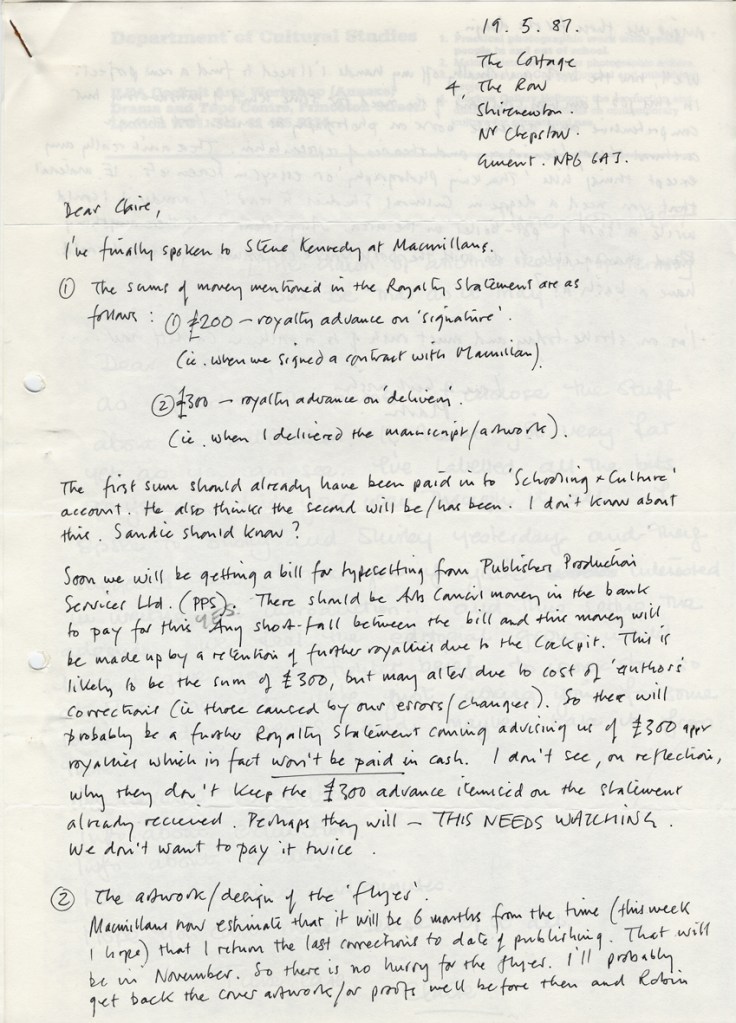 19. 5. 87.
The Cottage
4, The Row
Shirenewton.
Nr Chepstow.
Gwent. NP6 6AJ.
Dear Claire,
I've finally spoken to Steve Kennedy at Macmillans.
① The sums of money mentioned in the Royalty Statement are as
follows: ① £200 – royalty advance on 'signature'.
(ie. when we signed a contract with Macmillan).
② £300 – royalty advance on 'delivery'.
(ie. when I delivered the manuscript/artwork).
The first sum should already have been paid in to 'Schooling & Culture'
account. He also thinks the second will be/has been. I don't know about
this. Sandie should know?
Soon we will be getting a bill for typesetting from Publishers Production
Services Ltd. (PPS). There should be Arts Council money in the bank
to pay for this. Any short-fall between the bill and this money will
be made up by a retention of further royalties due to the Cockpit. This is
likely to be the sum of £300, but may alter due to cost of 'authors'
corrections (ie those caused by our errors/changes). So there will
probably be a further Royalty Statement coming advising us of £300 appr
royalties which in fact won't be paid in cash. I don't see, on reflection,
why they don't keep the £300 advance itemised on the statement
already recieved. Perhaps they will – THIS NEEDS WATCHING.
We don't want to pay it twice.
② The artwork/design of the 'flyer'.
Macmillans now estimate that it will be 6 months from the time (this week
I hope) that I return the last corrections to date of publishing. That will
be in November. So there is no hurry for the flyer. I'll probably
get back the cover artwork/or proofs well before then and Robin